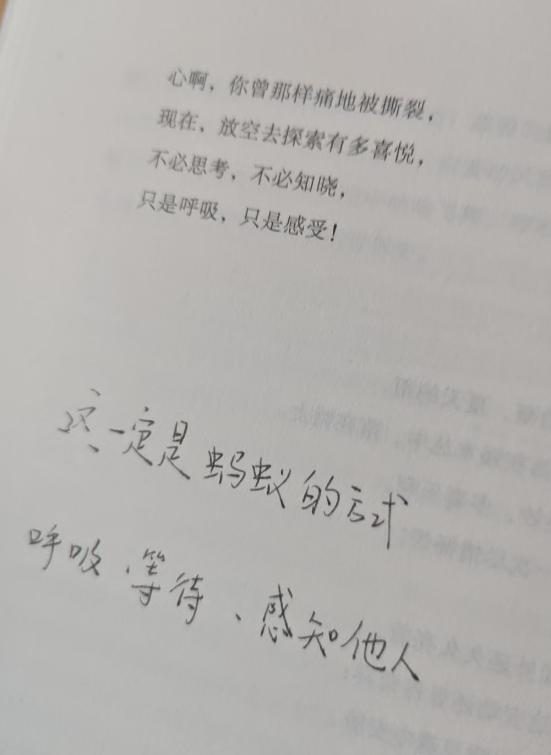 心啊，你曾那样痛地被撕裂，
现在，放空去探索有多喜悦，
不必思考，不必知晓，
只是呼吸，只是感受！
这一定是蚂蚁的方式
呼吸、等待、感知他人